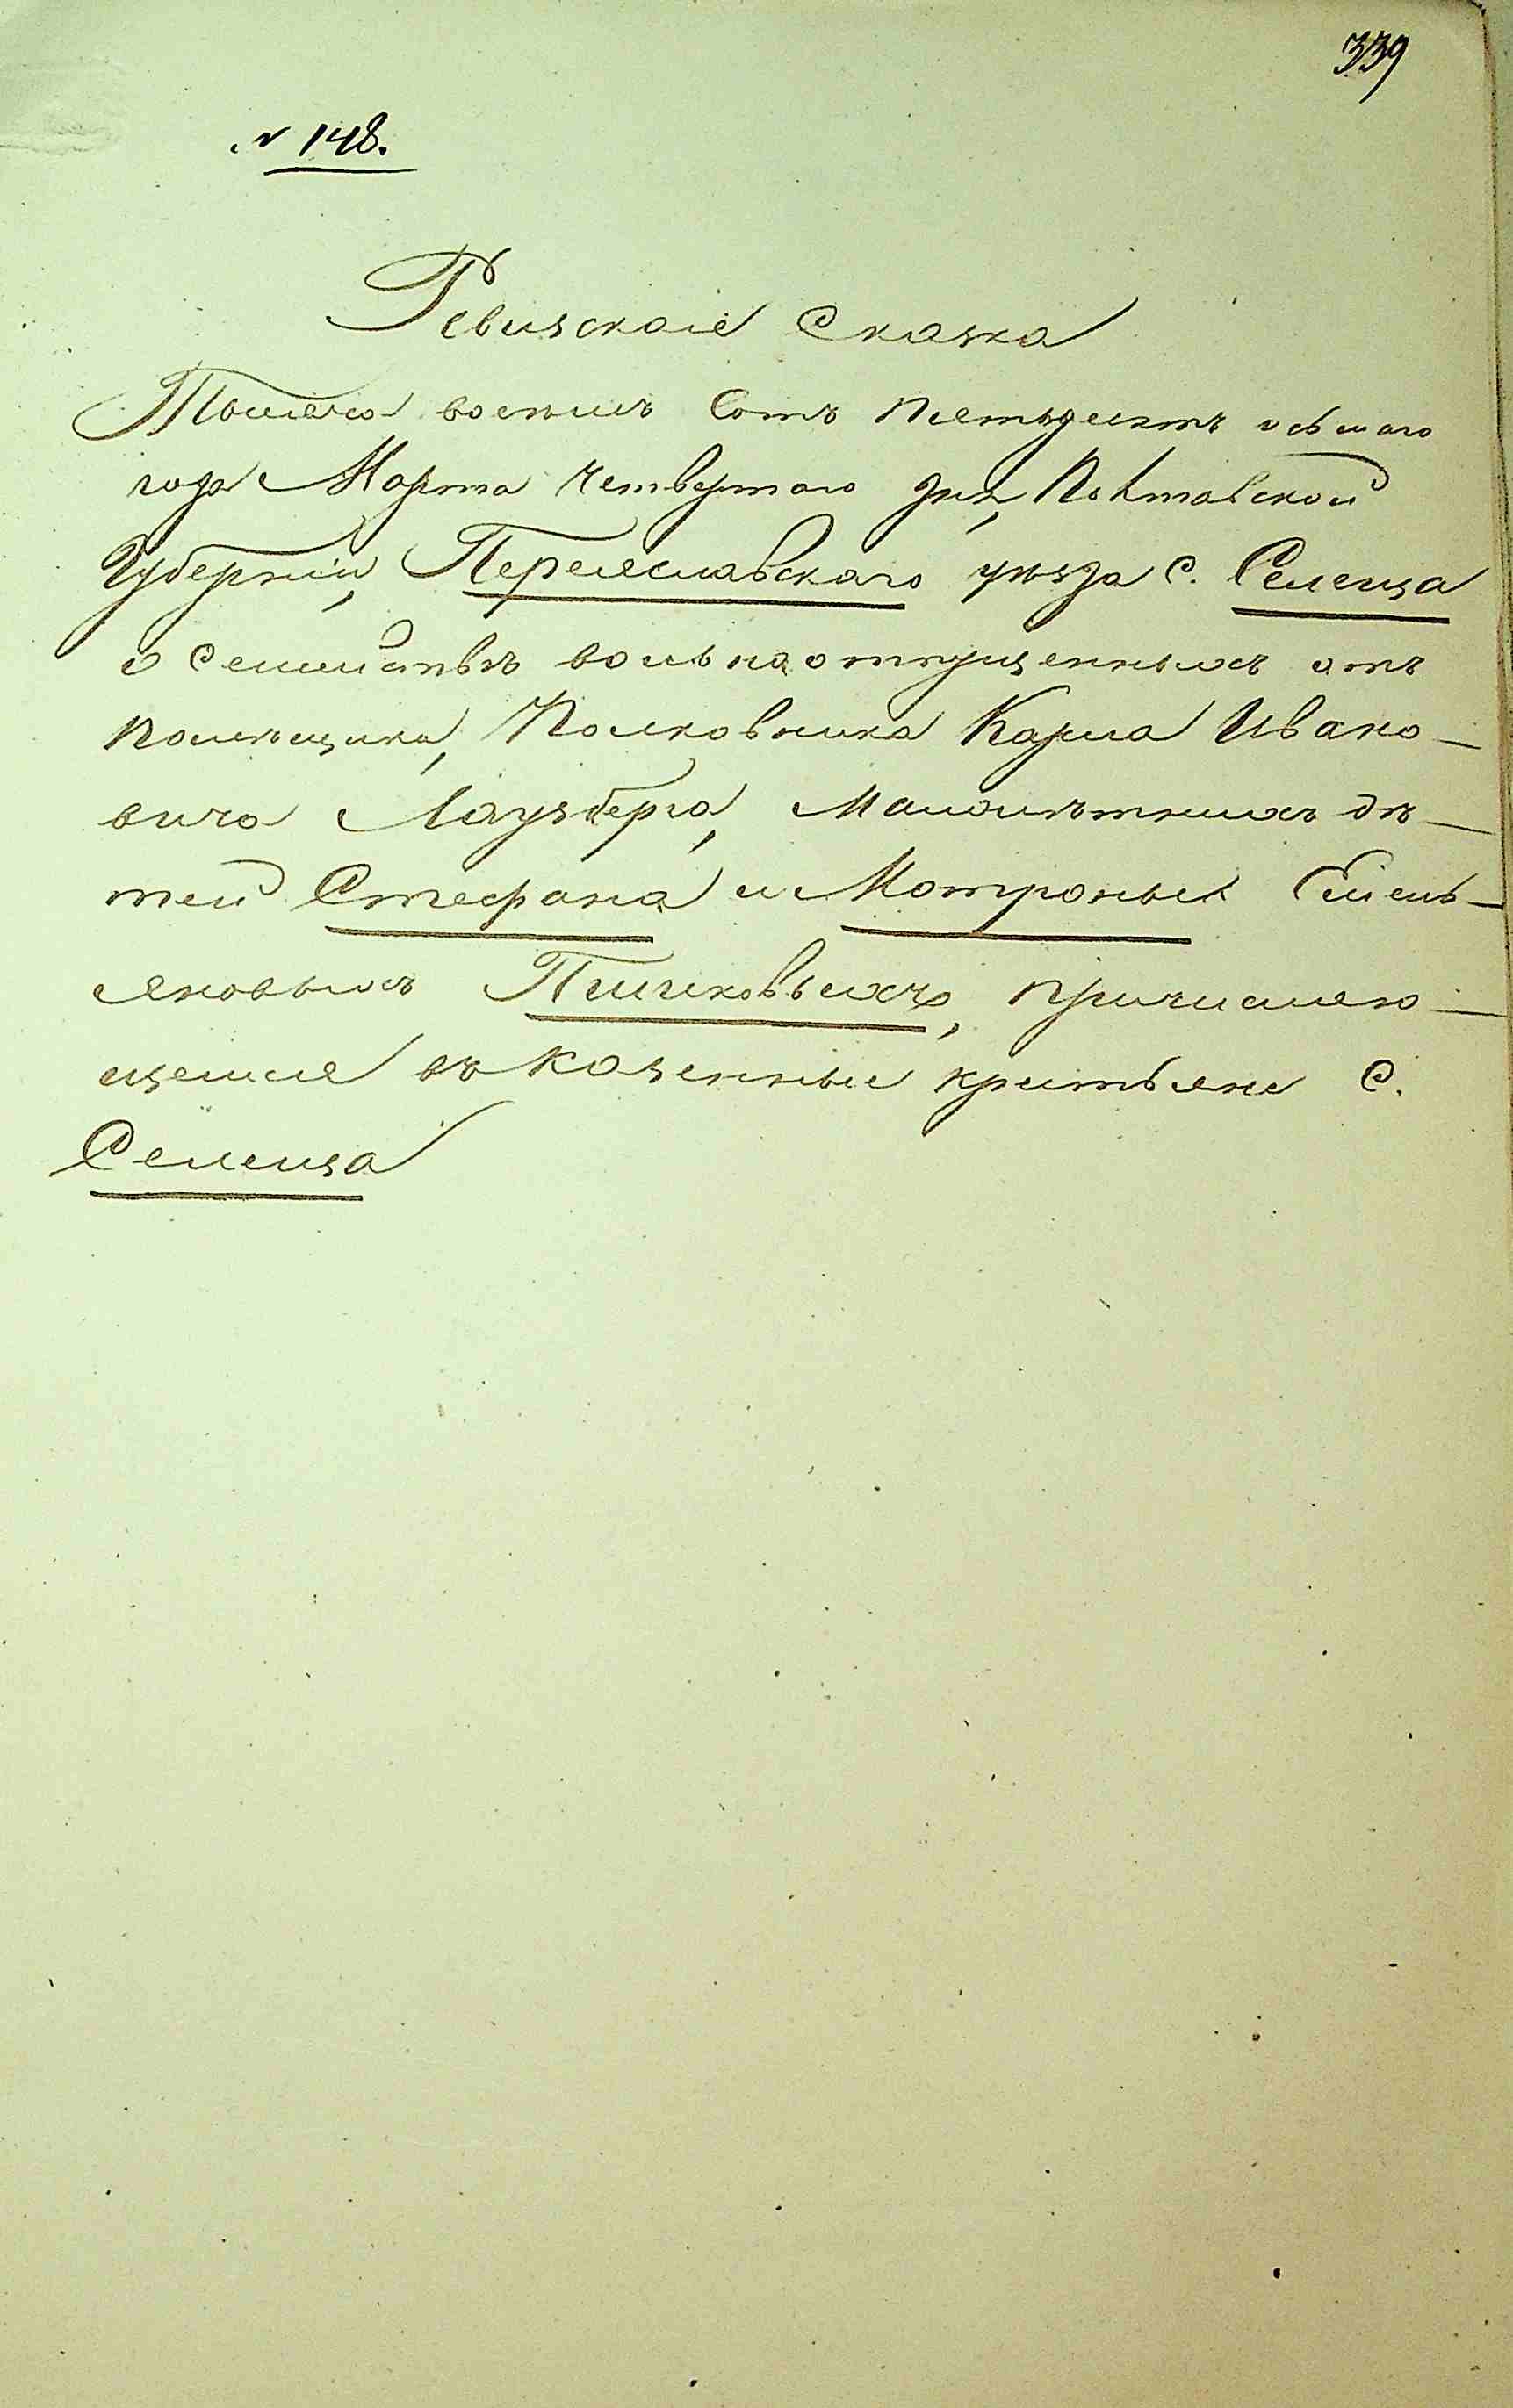 339
№ 148.
Ревизская Сказка
Тысяча восемь Сотъ пятьдесятъ осьмаго
года Марта Четвертаго дня, Полтавской
Губерніи, Переяславскаго уѣзда с. Селеща
о Семействѣ вольноотпущенныхъ отъ
помѣщика, Полковника Карла Ивано-
вича Лаузберга, Малолѣтнихъ дѣ-
тей Стефана и Матроны Емель-
яновыхъ причисляю-
щемся въ казенные крестьяне с.
Селеща